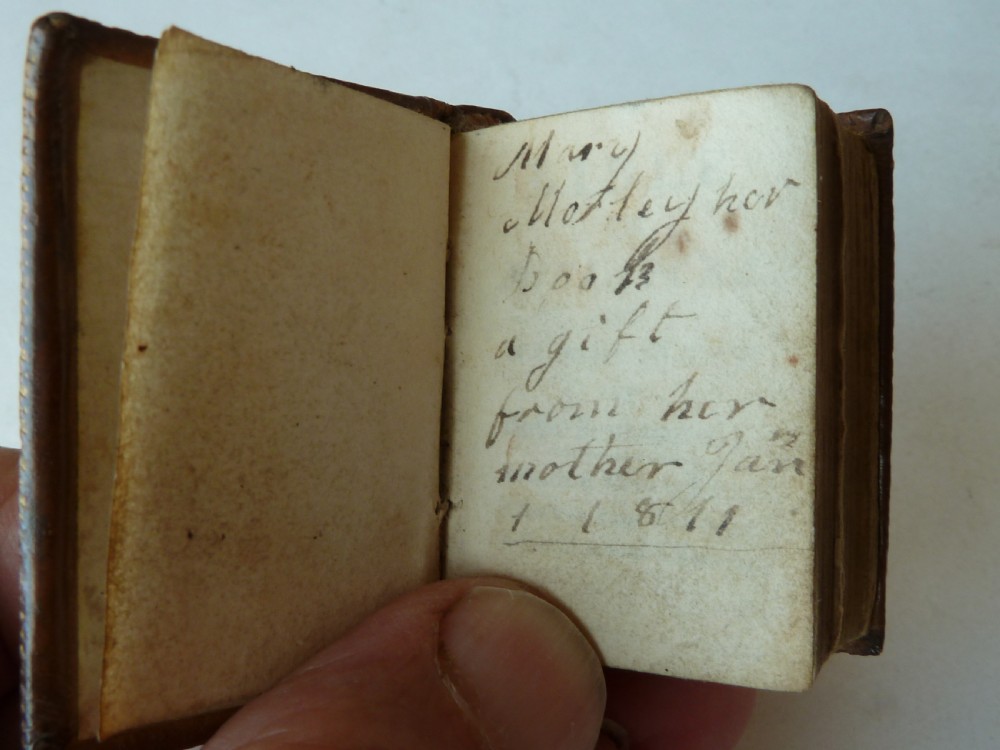 Mary
Motley her
book
a gift
from her
mother Jan
1 1811